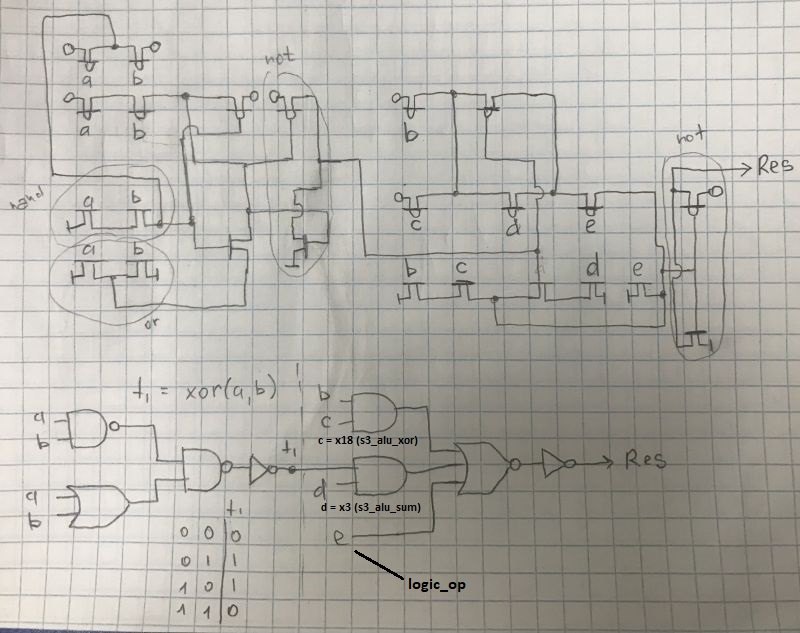 not
a b
a b
b
not
Res
nand
a b
c d e
a b
b c d e
or
f₁ = xor(a,b)
b
a
b
c
c = x18 (s3_alu_xor)
f₁
Res
a
b
d
d = x3 (s3_alu_sum)
f₁
0 0 0
e
0 1 1
1 0 1
logic_op
1 1 0